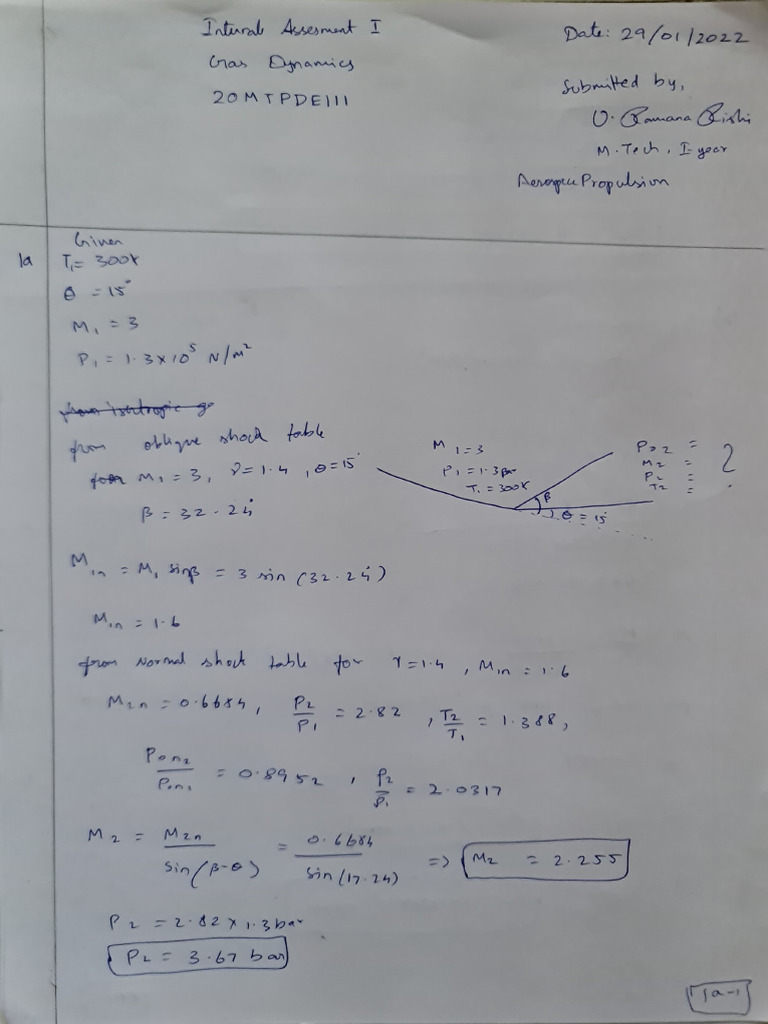 Internal Assesment I
Date: 29/01/2022
Gas Dynamics
20MTPDE111
Submitted by,
U. Ramana Rishi
M.Tech, I-year
Aerospace Propulsion
1a
Given
T₁ = 300K
θ = 15°
M₁ = 3
P₁ = 1.3×10⁵ N/m²
from isentropic
from oblique shock table
for M₁ = 3, γ = 1.4, θ = 15°
β = 32.24°
M₁=3
P₁=1.3bar
T₁=300K
β
θ = 15°
P₀₂ =
M₂ =
P₂ =
T₂ =
?
M₁ₙ = M₁ sinβ = 3 sin (32.24°)
M₁ₙ = 1.6
from Normal shock table for γ=1.4, M₁ₙ = 1.6
M₂ₙ = 0.6684, P₂/P₁ = 2.82, T₂/T₁ = 1.388,
P₀ₙ₂/P₀ₙ₁ = 0.8952, ρ₂/ρ₁ = 2.0317
M₂ = M₂ₙ/sin(β-θ) = 0.6684/sin(17.24) => M₂ = 2.255
P₂ = 2.82 × 1.3 bar
P₂ = 3.67 bar
1a-1